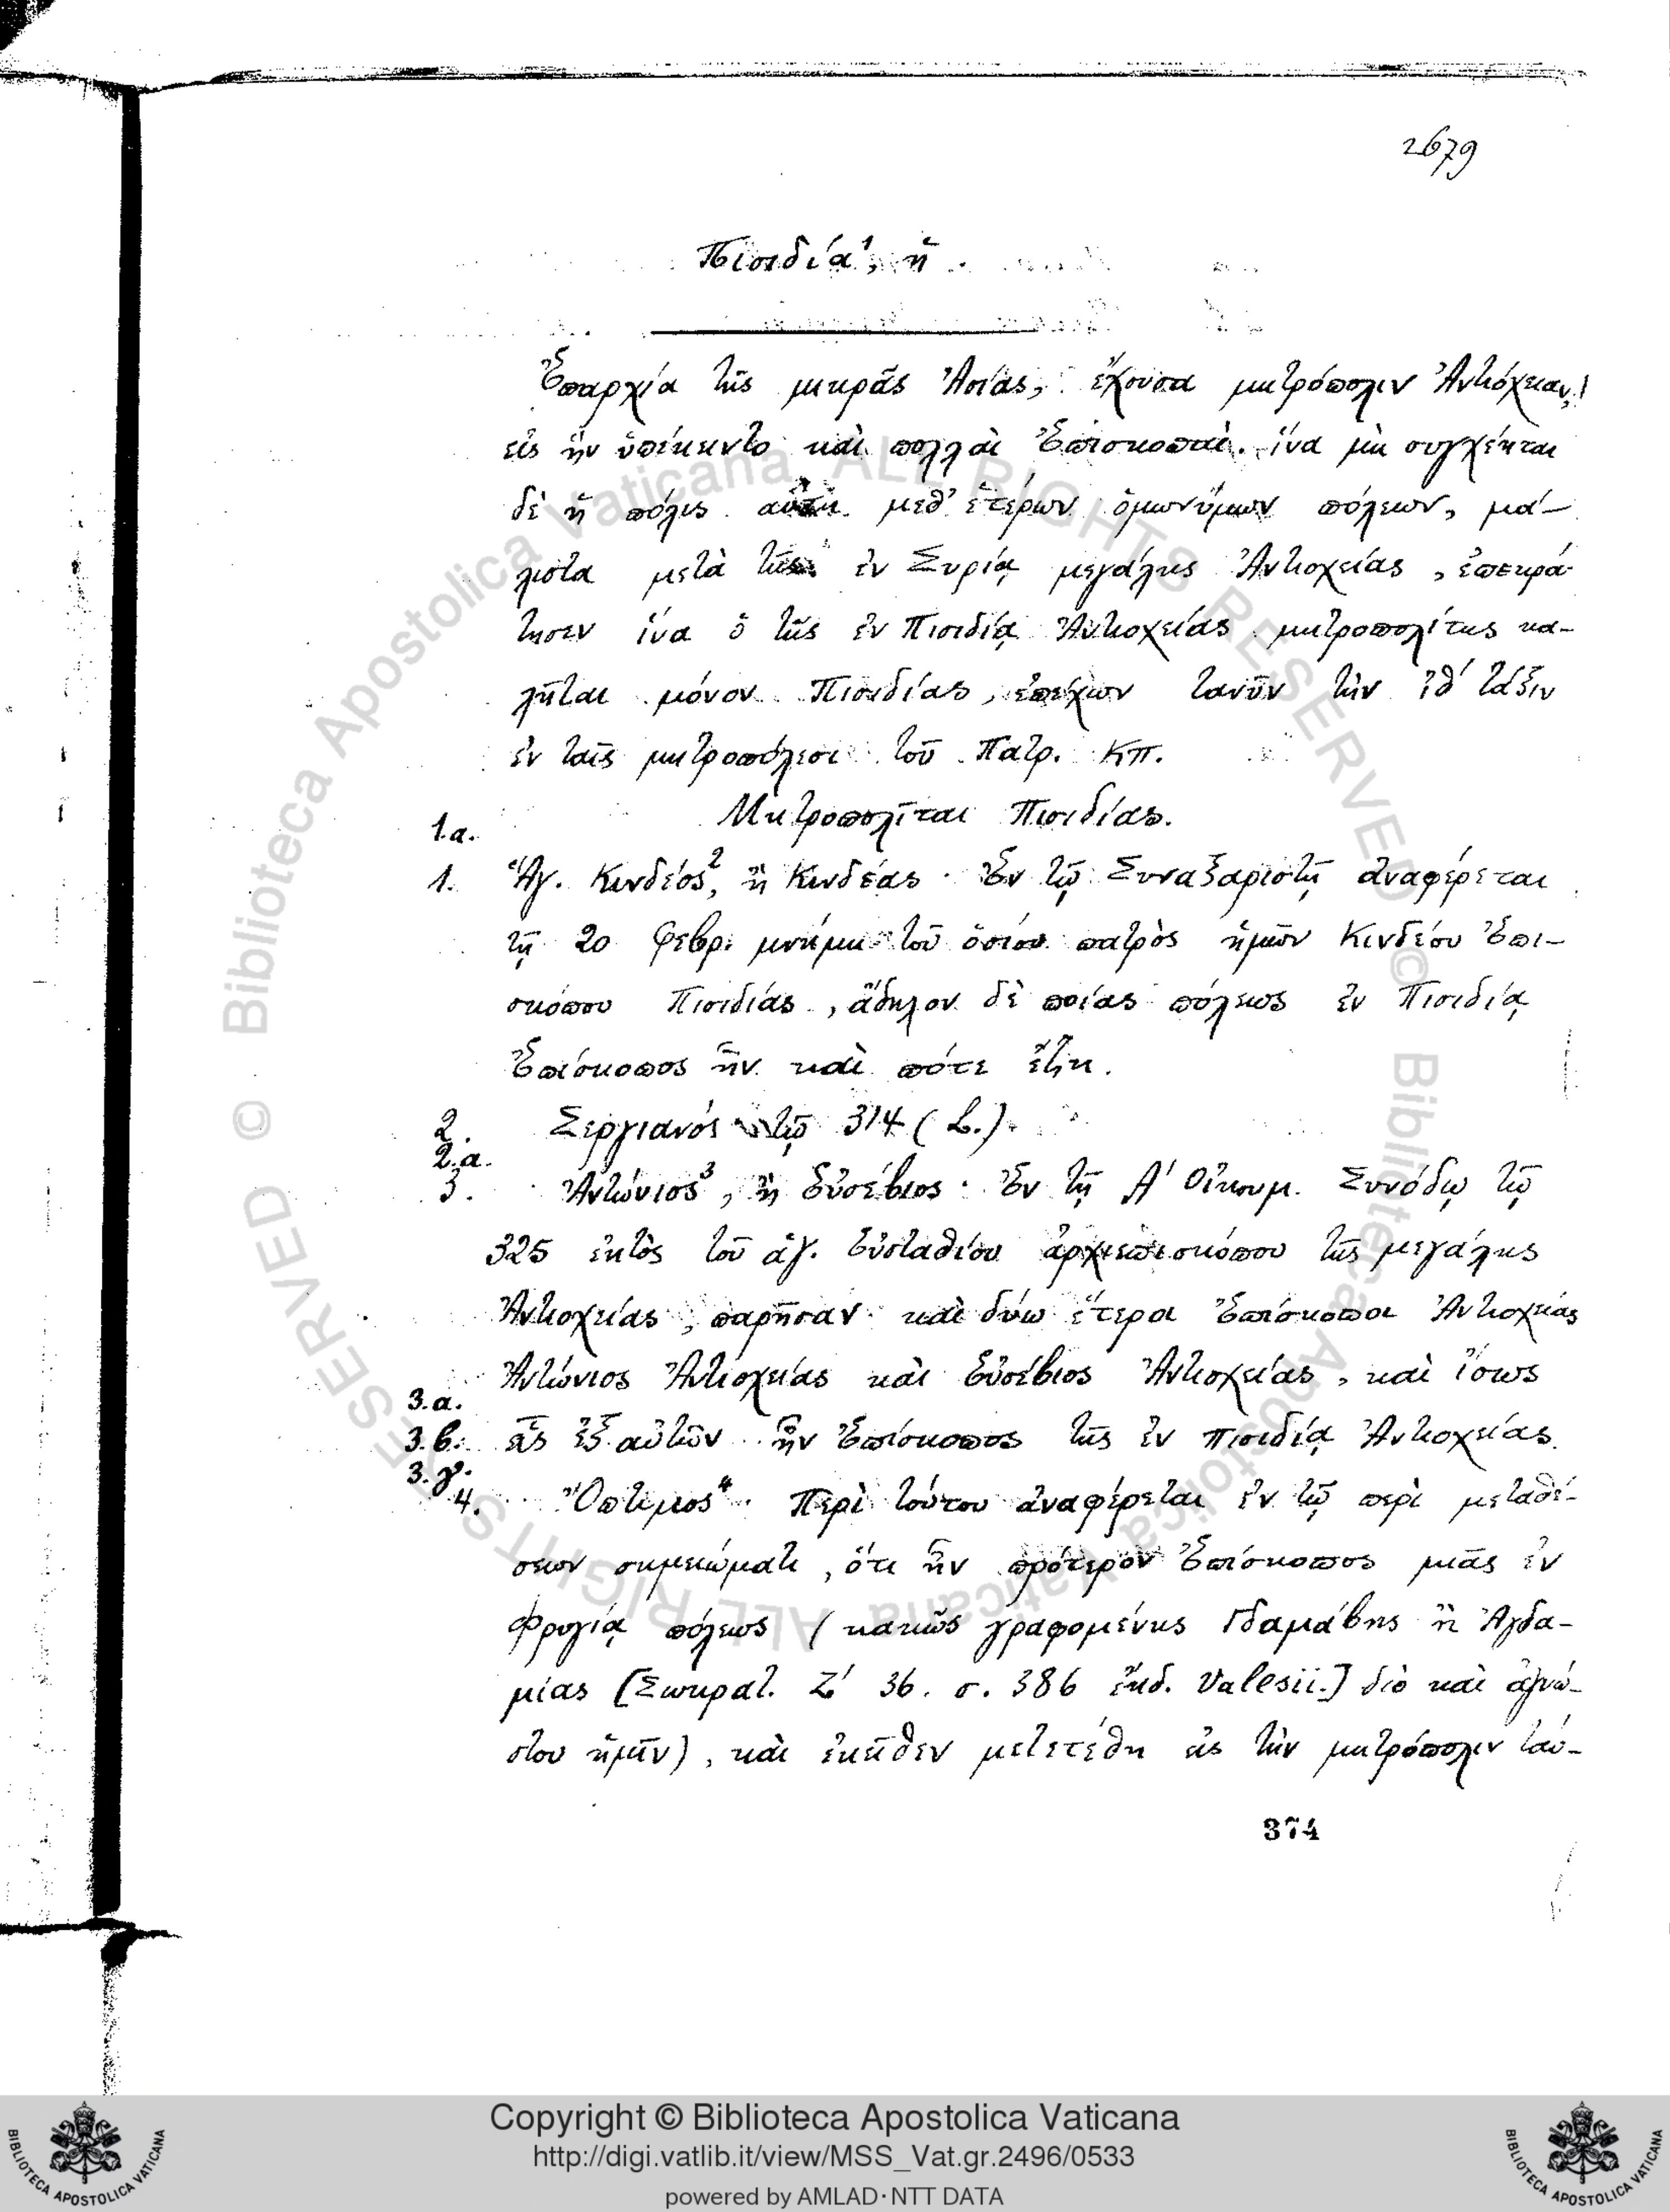 2679
Πισιδία¹, ἡ.
Ἐπαρχία τῆς μικρᾶς Ἀσίας, ἔχουσα μητρόπολιν Ἀντιόχειαν,
εἰς ἣν ὑπέκειντο καὶ πολλαὶ Ἐπισκοπαί. ἵνα μὴ συγχέηται
δὲ ἡ πόλις αὕτη μεθ' ἑτέρων ὁμωνύμων πόλεων, μά-
λιστα μετὰ τῆς ἐν Συρίᾳ μεγάλης Ἀντιοχείας, ἐπεκρά-
τησεν ἵνα ὁ τῆς ἐν Πισιδίᾳ Ἀντιοχείας μητροπολίτης κα-
λῆται μόνον Πισιδίας, ἐπέχων τανῦν τὴν ιθ' τάξιν
ἐν ταῖς μητροπόλεσι τοῦ Πατρ. ΚΠ.
Μητροπολῖται Πισιδίας.
1.α.
1. Ἅγ. Κινδέος², ἢ Κινδέας. Ἐν τῷ Συναξαριστῇ ἀναφέρεται
τῇ 20 Φεβρ. μνήμη τοῦ ὁσίου πατρὸς ἡμῶν Κινδέου Ἐπι-
σκόπου Πισιδίας, ἄδηλον δὲ ποίας πόλεως ἐν Πισιδίᾳ
Ἐπίσκοπος ἦν καὶ πότε ἔζη.
2. Σεργιανός τῷ 314 (L.).
2.α.
3. Ἀντώνιος³, ἢ Εὐσέβιος. Ἐν τῇ Α' Οἰκουμ. Συνόδῳ τῷ
325 ἐκτὸς τοῦ ἁγ. Εὐσταθίου ἀρχιεπισκόπου τῆς μεγάλης
Ἀντιοχείας, παρῆσαν καὶ δύω ἕτεροι Ἐπίσκοποι Ἀντιοχείας
Ἀντώνιος Ἀντιοχείας καὶ Εὐσέβιος Ἀντιοχείας, καὶ ἴσως
3.α.
3.β. εἷς ἐξ αὐτῶν ἦν Ἐπίσκοπος τῆς ἐν Πισιδίᾳ Ἀντιοχείας.
3.γ.
4. Ὄπτιμος⁴. Περὶ τούτου ἀναφέρεται ἐν τῷ περὶ μεταθέ-
σεων σημειώματι, ὅτι ἦν πρότερον Ἐπίσκοπος μιᾶς ἐν
Φρυγίᾳ πόλεως (κακῶς γραφομένης Γδαμάβης ἢ Ἀγδα-
μίας [Σωκρατ. Ζ' 36. σ. 386 ἔκδ. Valesii.] διὸ καὶ ἀγνώ-
στου ἡμῖν), καὶ ἐκεῖθεν μετετέθη εἰς τὴν μητρόπολιν ταύ-
374
Copyright © Biblioteca Apostolica Vaticana
http://digi.vatlib.it/view/MSS_Vat.gr.2496/0533
powered by AMLAD·NTT DATA
BIBLIOTECA APOSTOLICA VATICANA
BIBLIOTECA APOSTOLICA VATICANA
© Biblioteca Apostolica Vaticana ALL RIGHTS RESERVED © Biblioteca Apostolica Vaticana ALL RIGHTS RESERVED